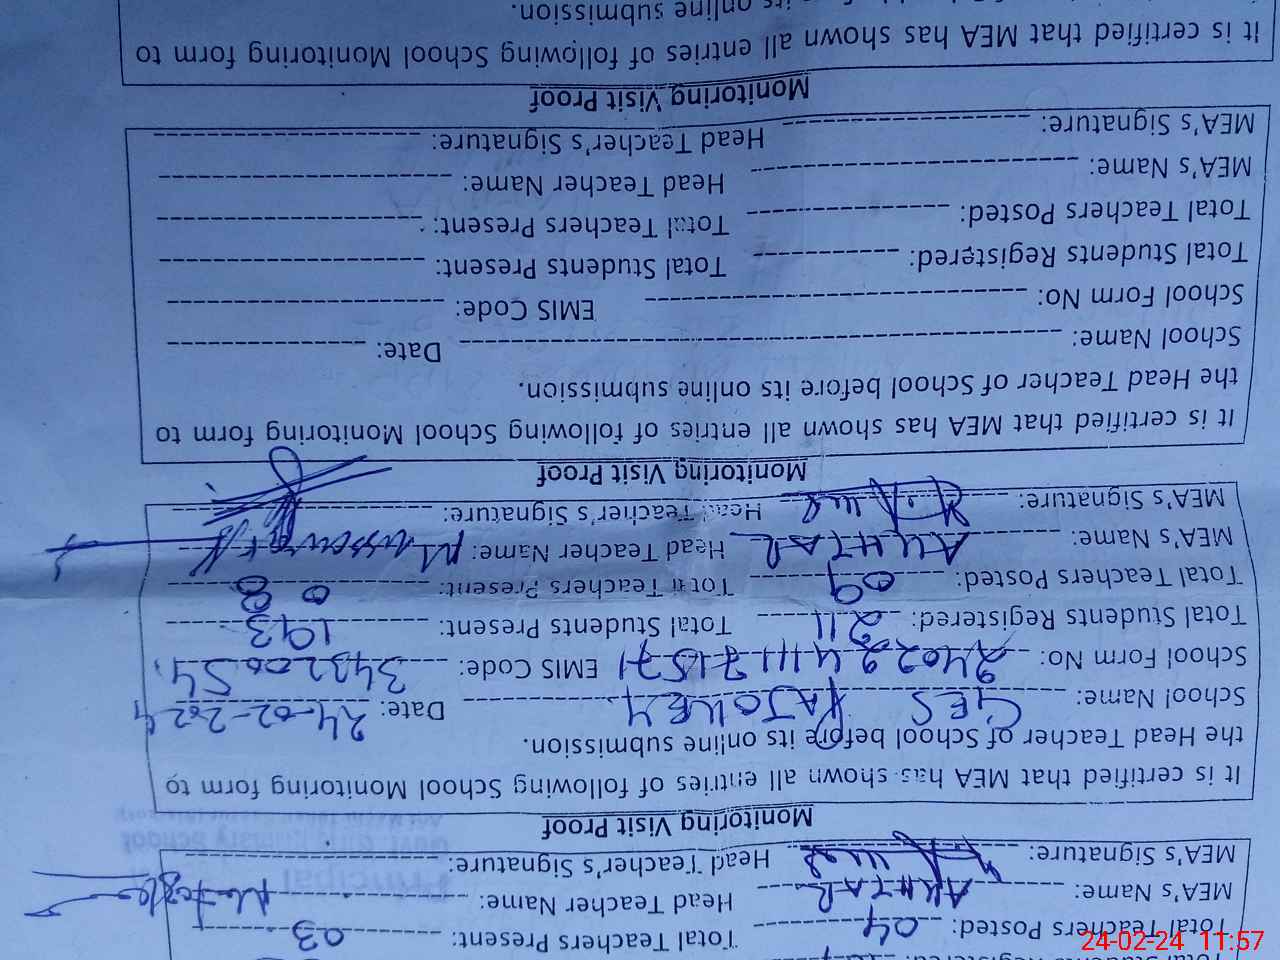 Total Teachers Posted: 04 Total Teachers Present: 03
MEA's Name: AKHTAR Head Teacher Name:
MEA's Signature: Head Teacher's Signature:
Monitoring Visit Proof
It is certified that MEA has shown all entries of following School Monitoring School form to
the Head Teacher of School before its online submission.
School Name: GES RAJOKEY Date: 24-02-2024
School Form No: 24022411171571 EMIS Code: 34320054
Total Students Registered: 211 Total Students Present: 193
Total Teachers Posted: 09 Total Teachers Present: 08
MEA's Name: AKHTAR Head Teacher Name:
MEA's Signature: Head Teacher's Signature:
Monitoring Visit Proof
It is certified that MEA has shown all entries of following School Monitoring School form to
the Head Teacher of School before its online submission.
School Name: Date:
School Form No: EMIS Code:
Total Students Registered: Total Students Present:
Total Teachers Posted: Total Teachers Present:
MEA's Name: Head Teacher Name:
MEA's Signature: Head Teacher's Signature:
Monitoring Visit Proof
It is certified that MEA has shown all entries of following School Monitoring School form to
its online submission.
24-02-24 11:57